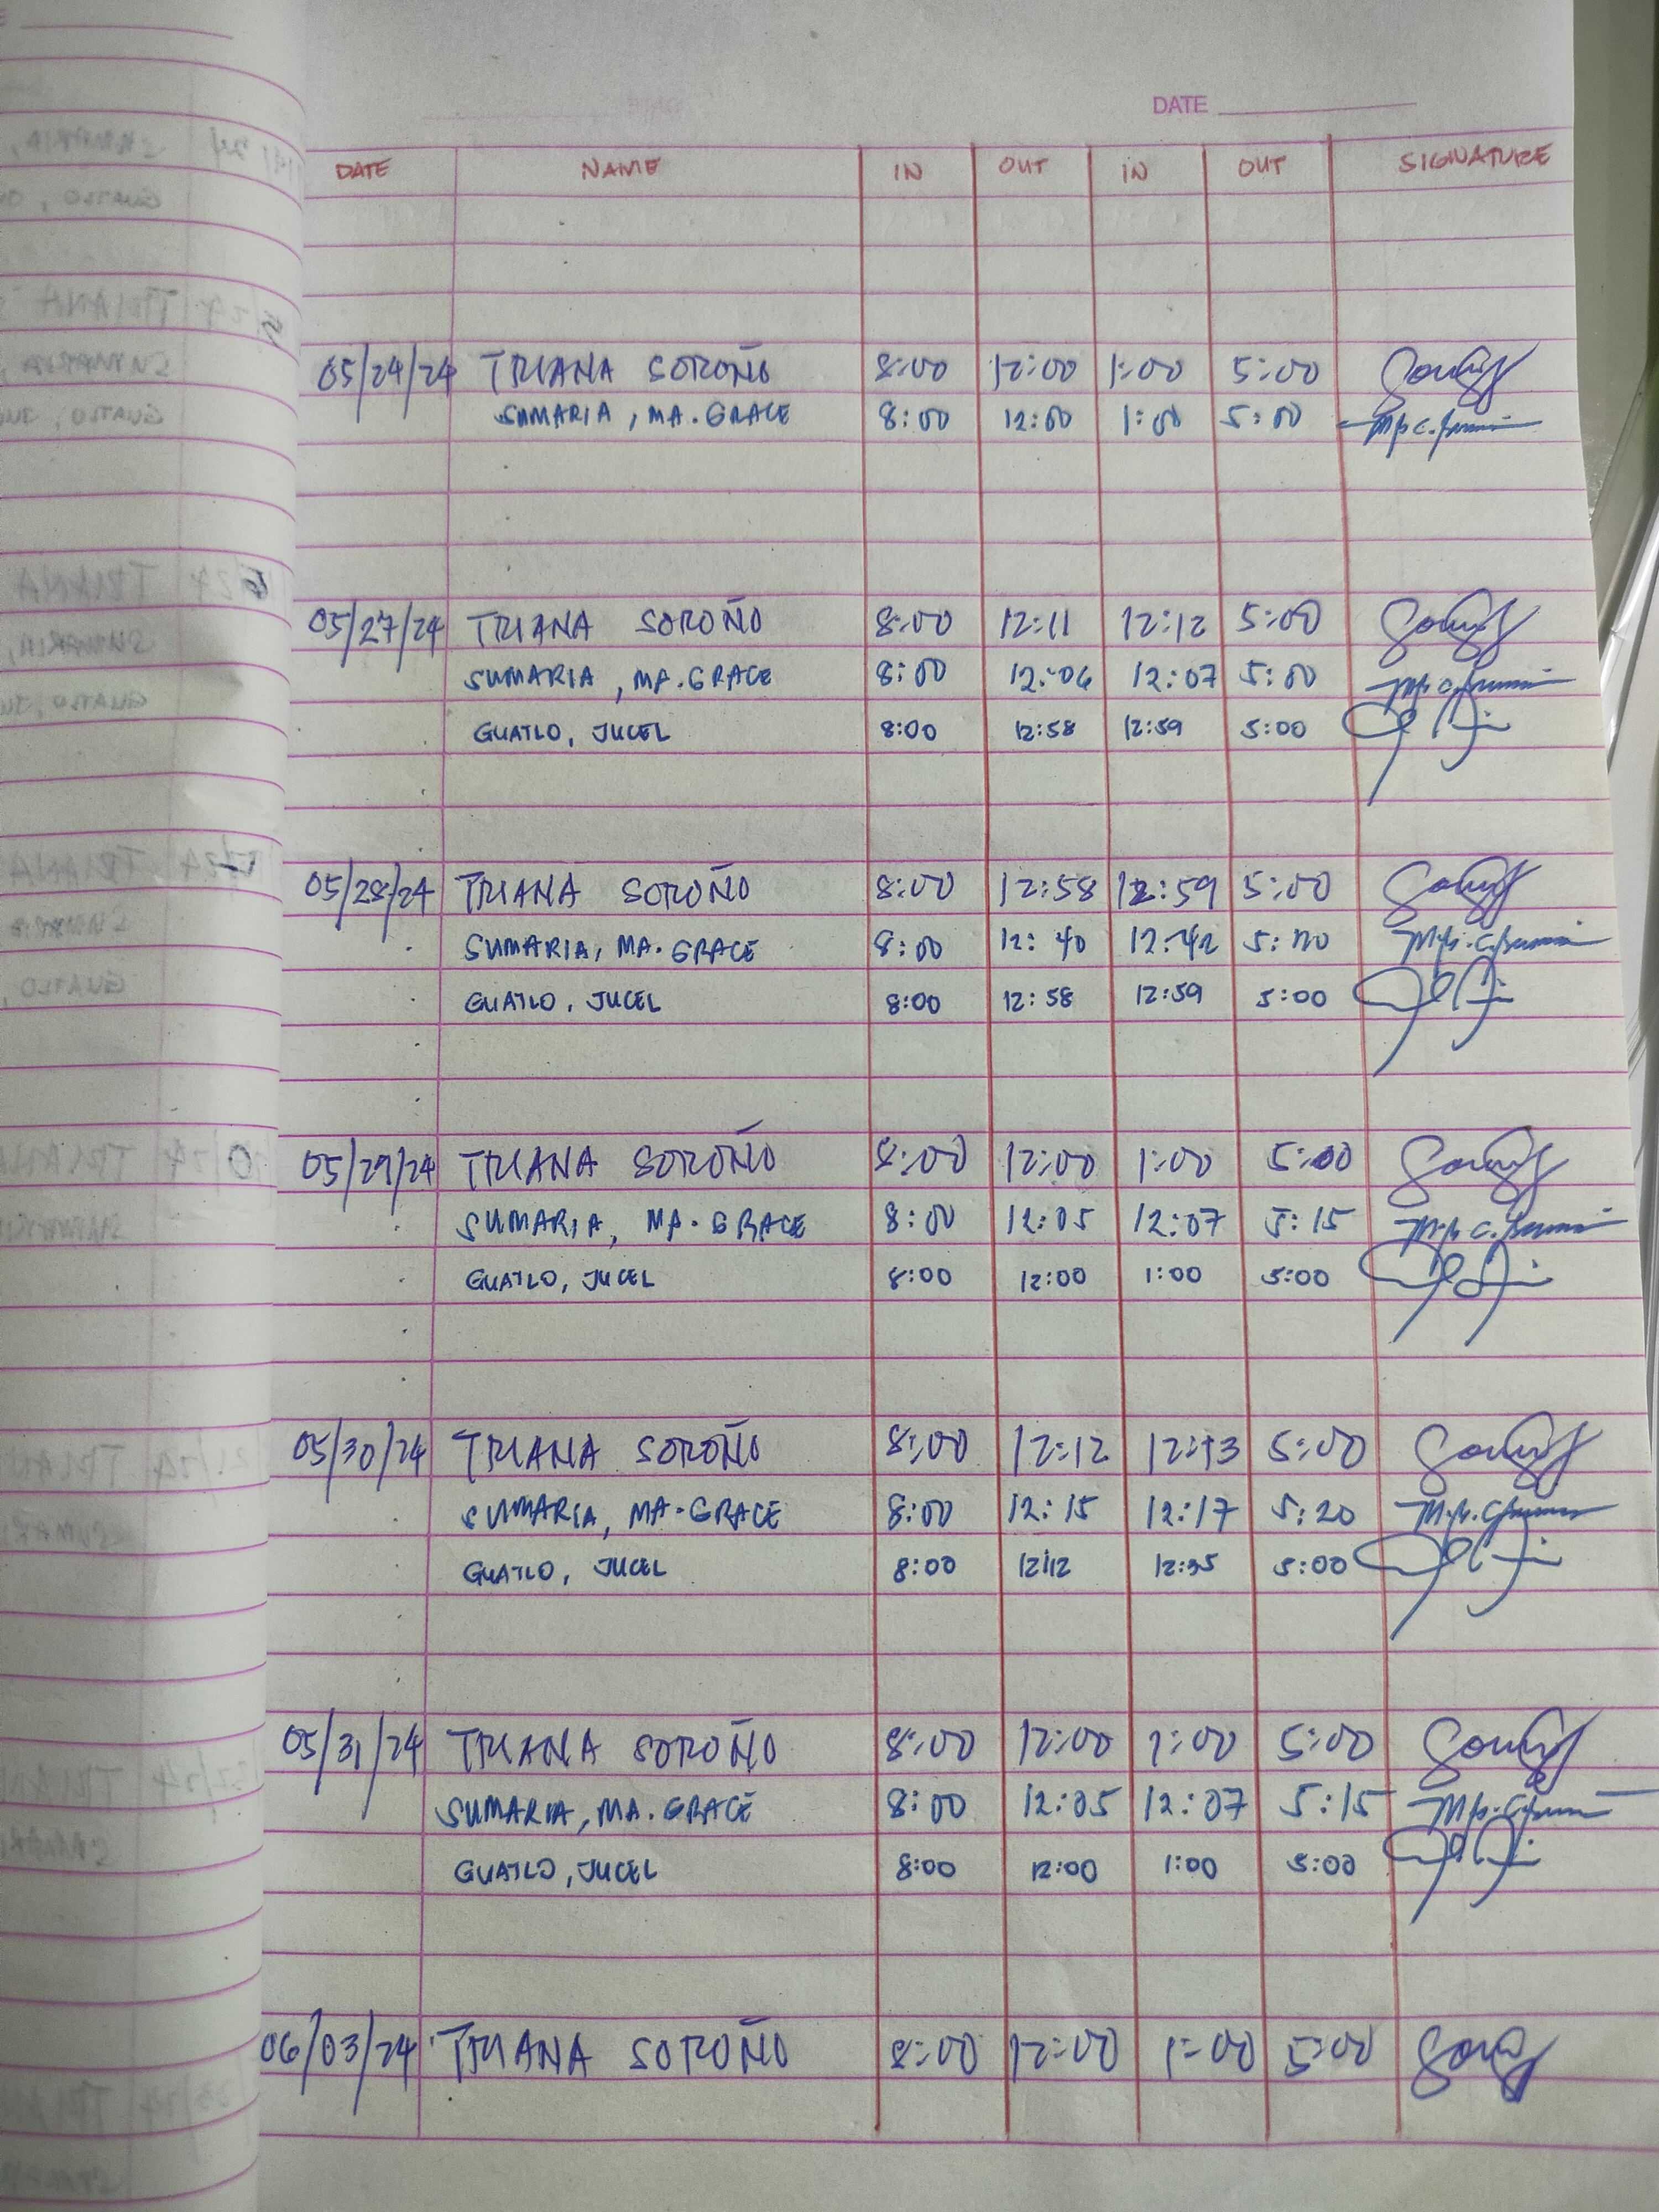 DATE
DATE NAME IN OUT IN OUT SIGNATURE
05/24/24 TRIANA SOROÑO 8:00 12:00 1:00 5:00
SUMARIA, MA. GRACE 8:00 12:00 1:00 5:00
05/27/24 TRIANA SOROÑO 8:00 12:11 12:12 5:00
SUMARIA, MA. GRACE 8:00 12:06 12:07 5:00
GUATLO, JUCEL 8:00 12:58 12:59 5:00
05/28/24 TRIANA SOROÑO 8:00 12:58 12:59 5:00
SUMARIA, MA. GRACE 8:00 12:40 12:42 5:00
GUATLO, JUCEL 8:00 12:58 12:59 5:00
05/29/24 TRIANA SOROÑO 8:00 12:00 1:00 5:00
SUMARIA, MA. GRACE 8:00 12:05 12:07 5:15
GUATLO, JUCEL 8:00 12:00 1:00 5:00
05/30/24 TRIANA SOROÑO 8:00 12:12 12:13 5:00
SUMARIA, MA. GRACE 8:00 12:15 12:17 5:20
GUATLO, JUCEL 8:00 12:12 12:35 5:00
05/31/24 TRIANA SOROÑO 8:00 12:00 1:00 5:00
SUMARIA, MA. GRACE 8:00 12:05 12:07 5:15
GUATLO, JUCEL 8:00 12:00 1:00 5:00
06/03/24 TRIANA SOROÑO 8:00 12:00 1:00 5:00